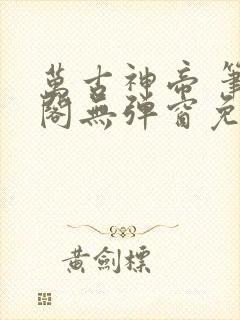 萬古神帝 筆
閣無彈窗免
黃劍標